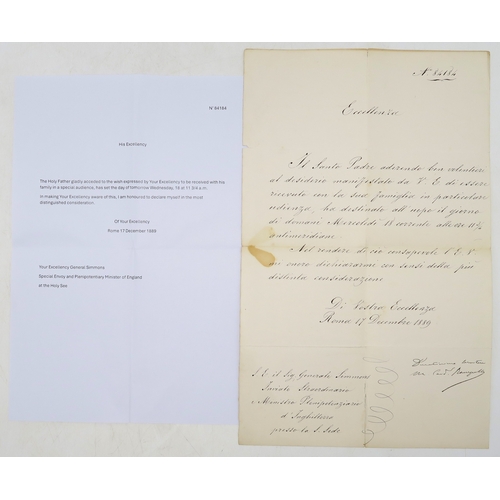 Nº 84184
His Excellency
The Holy Father gladly acceded to the wish expressed by Your Excellency to be received with his
family in a special audience, has set the day of tomorrow Wednesday, 18 at 11 3/4 a.m.
In making Your Excellency aware of this, I am honoured to declare myself in the most
distinguished consideration.
Of Your Excellency
Rome 17 December 1889
Your Excellency General Simmons
Special Envoy and Plenipotentiary Minister of England
at the Holy See
Nº 84184
Eccellenza
Il Santo Padre aderendo ben volentieri
al desiderio manifestato da V. E. di essere
ricevuto con la sua famiglia in particolar
udienza, ha destinato all' uopo il giorno
di domani Mercoledì 18 corrente alle ore 11¾
antimeridiane.
Nel rendere di ciò consapevole l'E. V.
mi onoro dichiararmi coi sensi della più
distinta considerazione
Di Vostra Eccellenza
Roma 17 Decembre 1889
S. E. il Sig. Generale Simmons
Inviato Straordinario
e Ministro Plenipotenziario
d' Inghilterra
presso la S. Sede